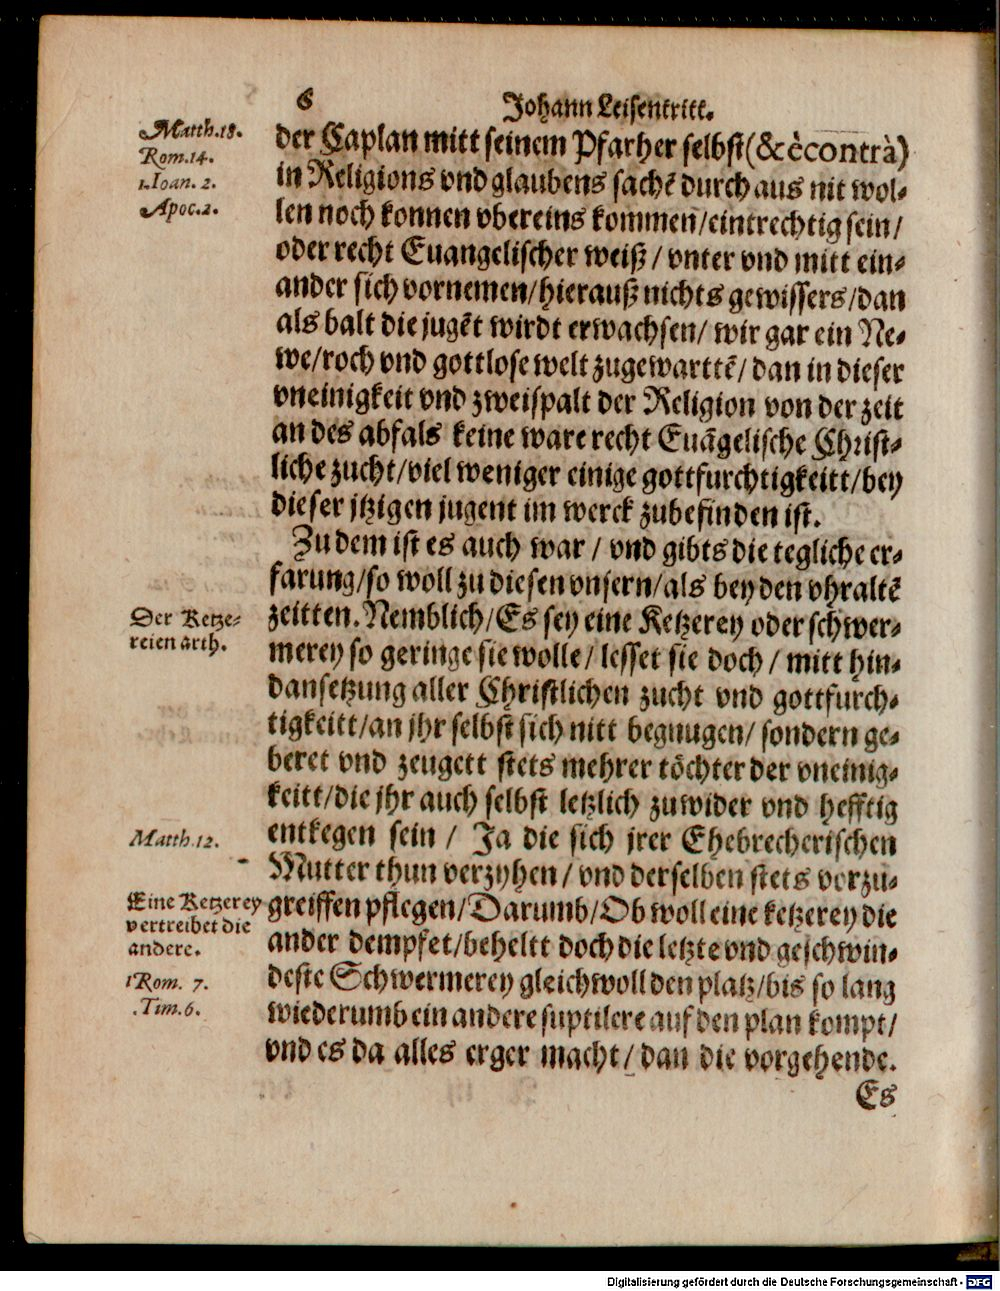 6 Johann Leisentritt.
Matth.18.
Rom.14.
1.Ioan. 2.
Apoc.2.
der Caplan mitt seinem Pfarher selbst (& ècontrà)
in Religions vnd glaubens sachẽ durch aus nit wol-
len noch konnen vbereins kommen/eintrechtig sein/
oder recht Euangelischer weiß / vnter vnd mitt ein-
ander sich vornemen/hierauß nichts gewissers/dan
als balt die jugẽt wirdt erwachsen/ wir gar ein Ne-
we/roch vnd gottlose welt zugewarttẽ/ dan in dieser
vneinigkeit vnd zweispalt der Religion von der zeit
an des abfals keine ware recht Euãgelische Christ-
liche zucht/viel weniger einige gottfurchtigkeitt/bey
dieser jtzigen jugent im werck zubefinden ist.
Zu dem ist es auch war / vnd gibts die tegliche er-
farung/so woll zu diesen vnsern/als bey den vhraltẽ
Der Ketze-
reien arth.
zeitten. Nemblich/Es sey eine Ketzerey oder schwer-
merey so geringe sie wolle/ lesset sie doch / mitt hin-
dansetzung aller Christlichen zucht vnd gottfurch-
tigkeitt/an jhr selbst sich nitt begnugen/ sondern ge-
beret vnd zeugett stets mehrer töchter der vneinig-
keitt/die jhr auch selbst letzlich zuwider vnd hefftig
Matth.12.
entkegen sein / Ja die sich jrer Ehebrecherischen
Mutter thun verzyhen / vnd derselben stets vorzu-
Eine Ketzerey
vertreibet die
andere.
1 Rom. 7.
.Tim.6.
greiffen pflegen/Darumb/Ob woll eine ketzerey die
ander dempfet/beheltt doch die letzte vnd geschwin-
deste Schwermerey gleichwoll den platz/bis so lang
wiederumb ein andere suptilere auf den plan kompt/
vnd es da alles erger macht/ dan die vorgehende.
Es
Digitalisierung gefördert durch die Deutsche Forschungsgemeinschaft - DFG